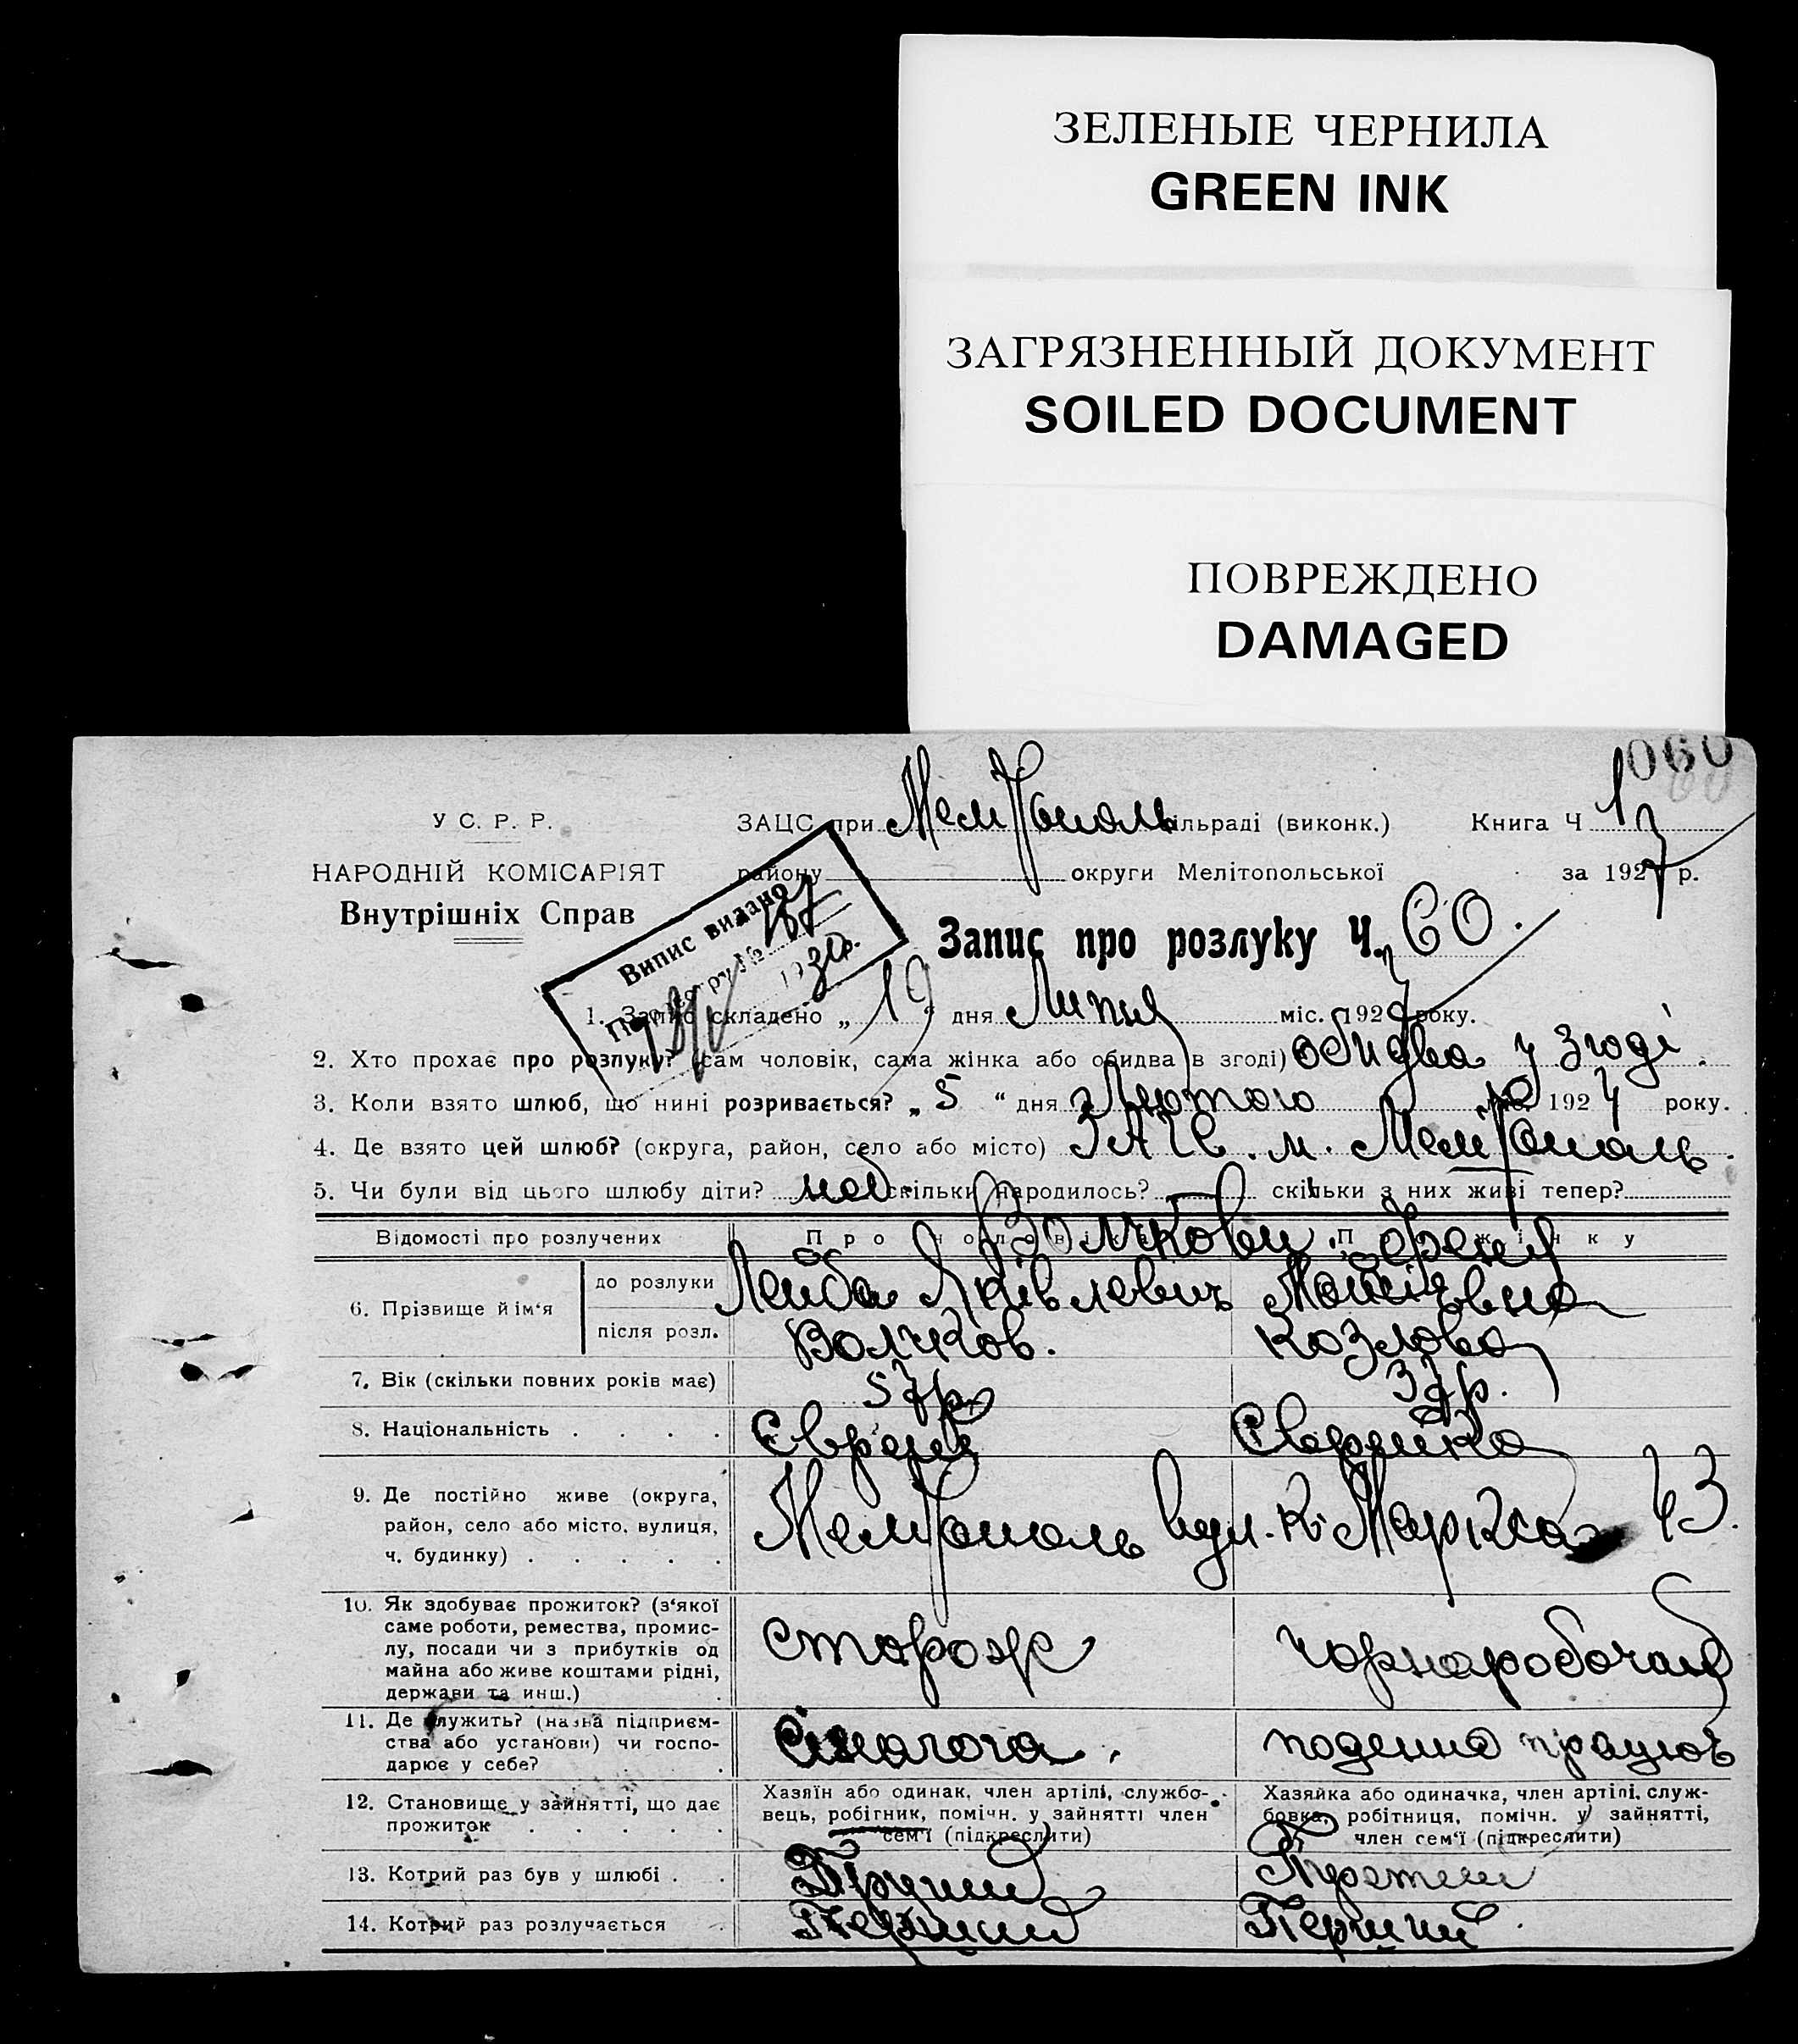 ЗЕЛЕНЫЕ ЧЕРНИЛА
GREEN INK
ЗАГРЯЗНЕННЫЙ ДОКУМЕНТ
SOILED DOCUMENT
ПОВРЕЖДЕНО
DAMAGED
060
У С. Р. Р.
НАРОДНІЙ КОМІСАРІЯТ
Внутрішніх Справ
ЗАЦС при Мелітополь сільраді (виконк.) Книга Ч 1
району округи Мелітопольської за 1927 р.
Випис видано
167
1930р.
Запис про розлуку Ч. 60.
1. Запис складено „19“ дня Липня міс. 1927 року.
2. Хто прохає про розлуку? (сам чоловік, сама жінка або обидва в згоді) обидва у згоді.
3. Коли взято шлюб, що нині розривається? „5“ дня Лютого міс. 1924 року.
4. Де взято цей шлюб? (округа, район, село або місто) ЗАЦС. м. Мелітополь.
5. Чи були від цього шлюбу діти? скільки народилось? скільки з них живі тепер?
Відомості про розлучених Про чоловіка Про жінку
Волчкови. Френя
6. Прізвище й ім‘я до розлуки Лейба Яківлевич Мойсіївна
після розл. Волчков. Козлова
7. Вік (скільки повних років має) 57р. 37р.
8. Національність . . . . Єврей Єврейка
9. Де постійно живе (округа,
район, село або місто, вулиця,
ч. будинку) . . . . .
Мелітополь вул. К. Маркса 43.
10. Як здобуває прожиток? (з‘якої
саме роботи, ремества, промис-
лу, посади чи з прибутків од
майна або живе коштами рідні,
держави та инш.) .
сторож чорноробочая
11. Де служить? (назва підприєм-
ства або установи) чи госпо-
дарює у себе? .
Сінагога. поденно працює
12. Становище у зайнятті, що дає
прожиток . . . . .
Хазяїн або одинак, член артілі, службо-
вець, робітник, помічн. у зайнятті член
сем‘ї (підкреслити)
Хазяйка або одиначка, член артілі, служ-
бовка, робітниця, помічн. у зайнятті,
член сем‘ї (підкреслити)
13. Котрий раз був у шлюбі . . Другий
14. Котрий раз розлучається . Перший Перший.